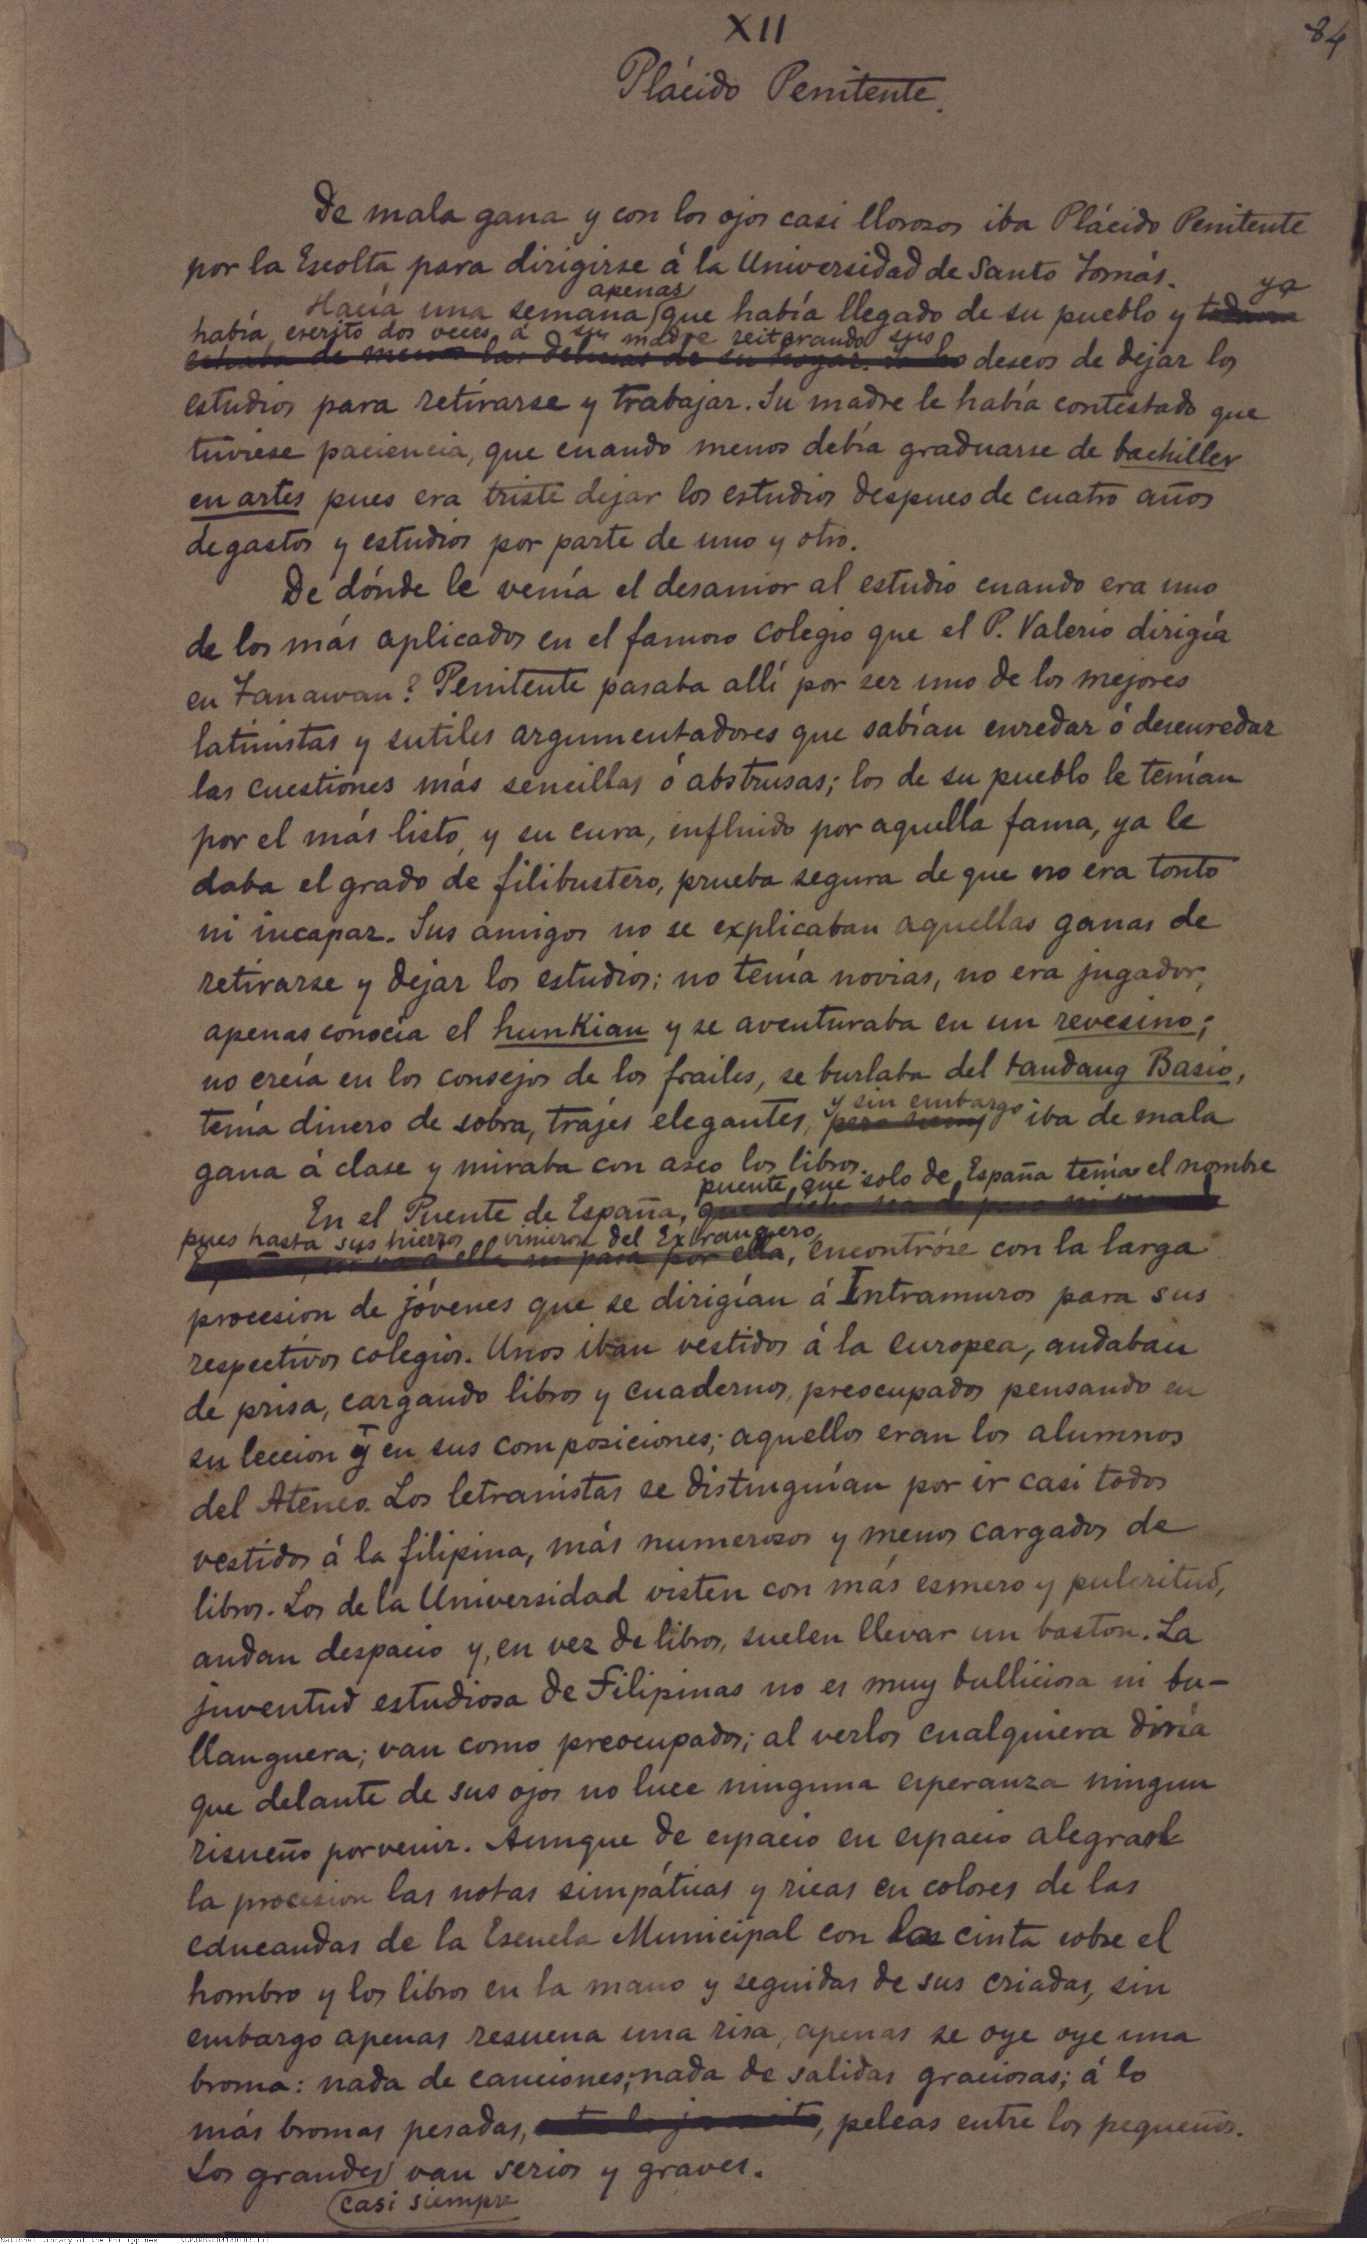 XII
84
Plácido Penitente.
De mala gana y con los ojos casi llorosos iba Plácido Penitente
por la Escolta para dirigirse á la Universidad de Santo Tomás.
apenas ya
Hacía una semana que había llegado de su pueblo y todavía
había escrito dos veces á su madre reiterando sus
echaba de menos las delicias de su hogar. deseos de dejar los
estudios para retirarse y trabajar. Su madre le había contestado que
tuviese paciencia, que cuando menos debía graduarse de bachiller
en artes pues era triste dejar los estudios despues de cuatro años
de gastos y estudios por parte de uno y otro.
De dónde le venía el desamor al estudio cuando era uno
de los más aplicados en el famoso colegio que el P. Valerio dirigía
en Tanawan? Penitente pasaba allí por ser uno de los mejores
latinistas y sutiles argumentadores que sabían enredar ó desenredar
las cuestiones más sencillas ó abstrusas; los de su pueblo le tenían
por el más listo, y su cura, influido por aquella fama, ya le
daba el grado de filibustero, prueba segura de que no era tonto
ni incapaz. Sus amigos no se explicaban aquellas ganas de
retirarse y dejar los estudios: no tenía novias, no era jugador,
apenas conocía el hunkian y se aventuraba en un revesino;
no creía en los consejos de los frailes, se burlaba del tandang Basio,
y sin embargo
tenía dinero de sobra, trajes elegantes, pero iba de mala
gana á clase y miraba con asco los libros.
puente que solo de España tenía el nombre
En el Puente de España,
pues hasta sus hierros vinieron del Extrangero
encontróse con la larga
procesion de jóvenes que se dirigían á Intramuros para sus
respectivos colegios. Unos iban vestidos á la europea, andaban
de prisa, cargando libros y cuadernos, preocupados pensando en
su leccion y en sus composiciones; aquellos eran los alumnos
del Ateneo. Los letranistas se distinguían por ir casi todos
vestidos á la filipina, más numerosos y menos cargados de
libros. Los de la Universidad visten con más esmero y pulcritud,
andan despacio y, en vez de libros, suelen llevar un baston. La
juventud estudiosa de Filipinas no es muy bulliciosa ni bu-
llanguera; van como preocupados; al verlos cualquiera diría
que delante de sus ojos no luce ninguna esperanza ningun
risueño porvenir. Aunque de espacio en espacio alegran
la procesion las notas simpáticas y ricas en colores de las
educandas de la Escuela Municipal con la cinta sobre el
hombro y los libros en la mano y seguidas de sus criadas, sin
embargo apenas resuena una risa, apenas se oye oye una
broma: nada de canciones; nada de salidas graciosas; á lo
más bromas pesadas, peleas entre los pequeños.
Los grandes van serios y graves.
casi siempre
National Library of the Philippines